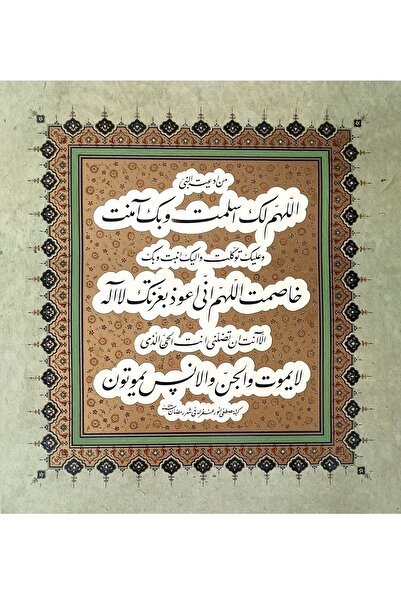 من ادعية النبي
اللهم لك اسلمت وبك آمنت
وعليك توكلت واليك انبت وبك
خاصمت اللهم انى اعوذ بعزتك لا اله
الا انت ان تضلنى انت الحى الذى
لا يموت والجن والانس يموتون